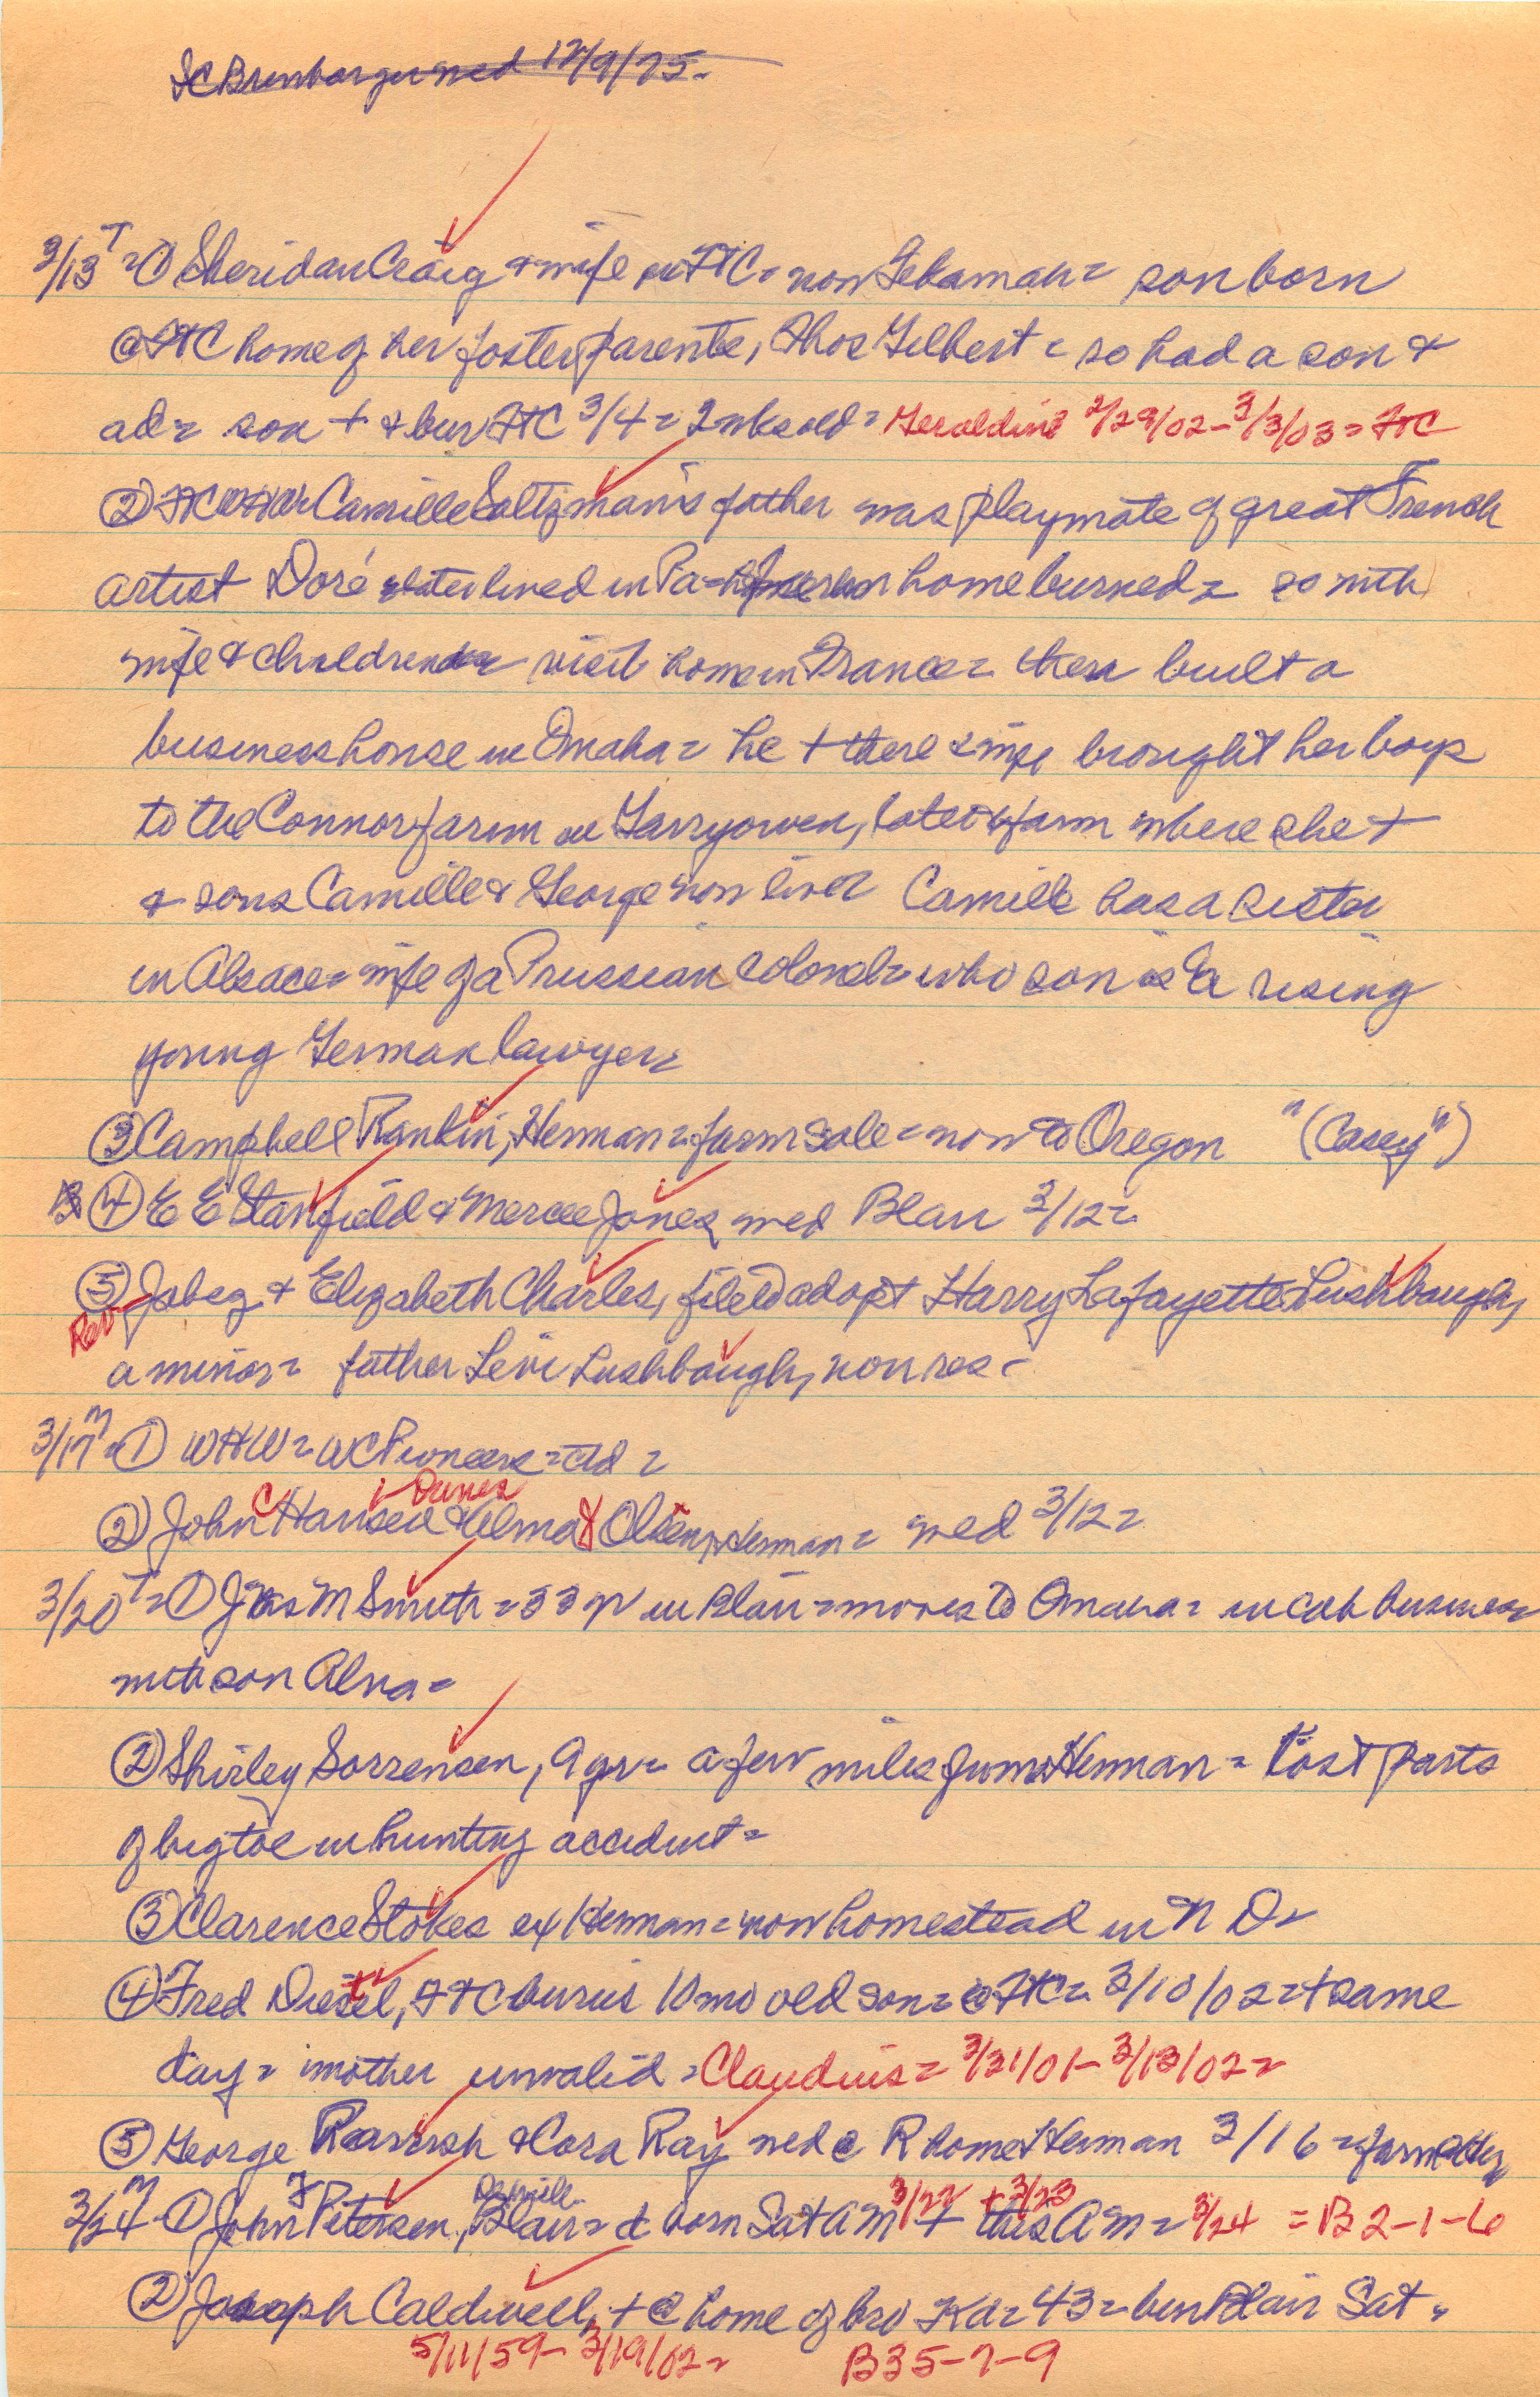 12/9/75-
3/13 T = ① Sheridan Craig & wife in FtC = now Tekamah = son born
@ FtC home of her foster parents, Thos Gilbert = so had a son &
a d = son + & bur FtC 3/4 = 2 wks old = Geraldine 2/29/02 - 3/3/03 = FtC
② FtC Camille Saltzman's father was playmate of great French
artist Doré & later lived in Pa = home burned = so with
wife & children visit home in France = then built a
business house in Omaha = he + there & wife brought her boys
to the Connor farm in Garryowen, later farm where she +
& sons Camille & George now live = Camille has a sister
in Alsace = wife of a Prussian colonel = who son is a rising
young German lawyer =
③ Campbell Rankin, Herman = farm sale = now to Oregon "(Casey")
④ E E Stanfield & Mercee Jones wed Blair 3/12 =
⑤ Rev Jabez & Elizabeth Charles, file to adopt Harry Lafayette Lushbaugh,
a minor = father Levi Lushbaugh, non res -
3/17 M = ① WHW = WC Pioneers = ad =
② John C Hansen & Alma Olsen, Herman = wed 3/12 =
3/20 T = ① Jas M Smith = 33 yr in Blair = moves to Omaha = in cab business
with son Alva =
② Shirley Sorrensen, 9 yr = a few miles from Herman = lost parts
of big toe in hunting accident =
③ Clarence Stokes ex Herman = now homestead in N D =
④ Fred Diestel, FtC buries 10 mo old son = @ FtC = 3/10/02 = + same
day = mother invalid = Claudius = 3/31/01 - 3/13/02 =
⑤ George Ravrsh & Cora Ray wed @ R home Herman 3/16 = farm
3/24 M = ① John F Petersen, Blair = d born Sat AM 3/22 + 3/23 this AM = 3/24 = B 2-1-6
② Joseph Caldwell, + @ home of bro Kd = 43 = bur Blair Sat =
5/11/59 - 3/19/02 = B35-7-9